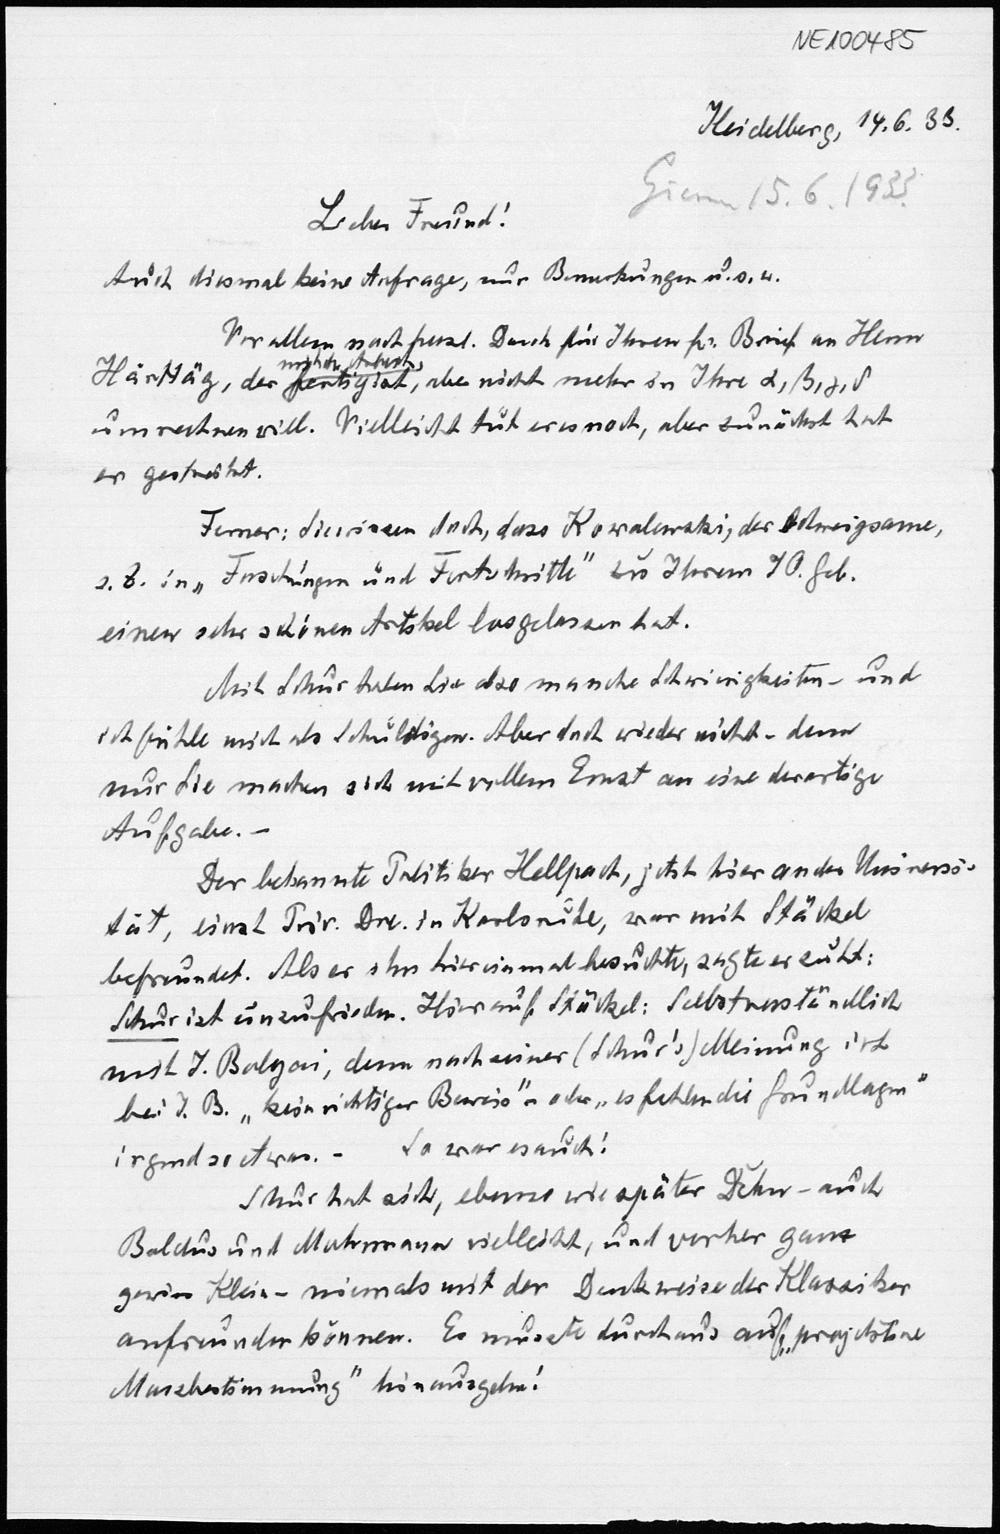 NE100485
Heidelberg, 14.6.33.
15.6.1933
Lieber Freund!
Auch diesmal keine Anfrage, nur Bemerkungen u.s.w.
Vor allem noch herzl. Dank für Ihren fr. Brief an Herrn
Härttäg, der fertig ist, aber nicht mehr in Ihre α, β, γ, δ
umrechnen will. Vielleicht tut er es noch, aber zunächst hat
er gestreikt.
Ferner: Sie wissen doch, dass Kowalewski, der Schweigsame,
s. Z. in „Forschungen und Fortschritte" zu Ihrem 70. Geb.
einen sehr schönen Artikel losgelassen hat.
Mit Schur haben Sie also manche Schwierigkeiten – und
ich fühle mich als Schuldigen. Aber doch wieder nicht – denn
nur Sie machen sich mit vollem Ernst an eine derartige
Aufgabe. –
Der bekannte Politiker Hellpach, jetzt hier an der Universi-
tät, einst Priv. Doz. in Karlsruhe, war mit Stäckel
befreundet. Als er ihn hier einmal besuchte, sagte er zu St:
Schur ist unzufrieden. Hierauf Stäckel: Selbstverständlich
mit J. Bolyai, denn nach seiner (Schur's) Meinung ist
bei J. B. „kein richtiger Beweis" oder „es fehlen die Grundlagen"
irgend so etwas. – So war es auch!
Schur hat sich, ebenso wie später Dehn – auch
Baldus und Mohrmann vielleicht, und vorher ganz
gewiss Klein – niemals mit der Denkweise der Klassiker
anfreunden können. Es musste durchaus auf „projektive
Massbestimmung" hinausgehn!